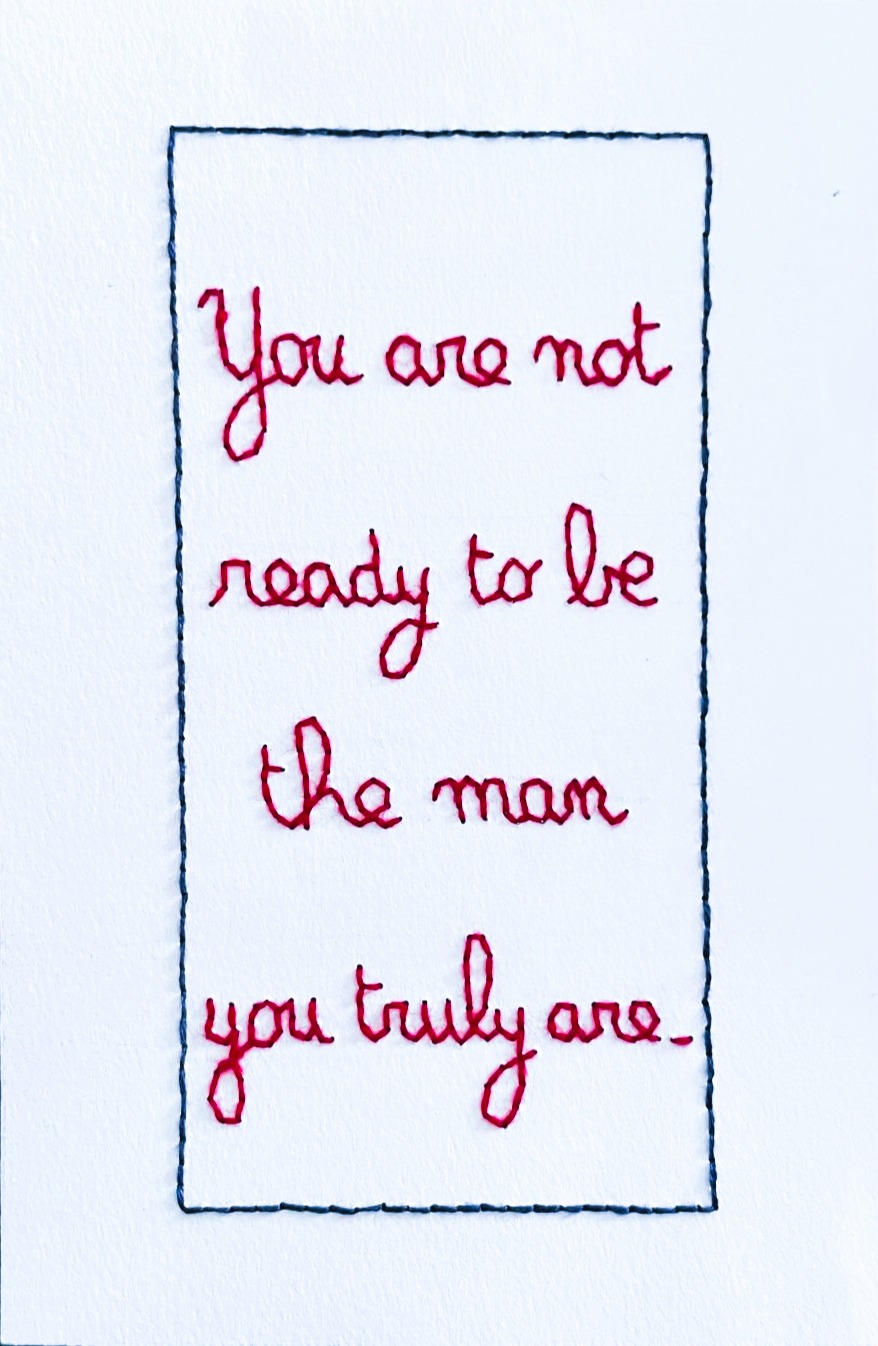 You are not
ready to be
the man
you truly are.